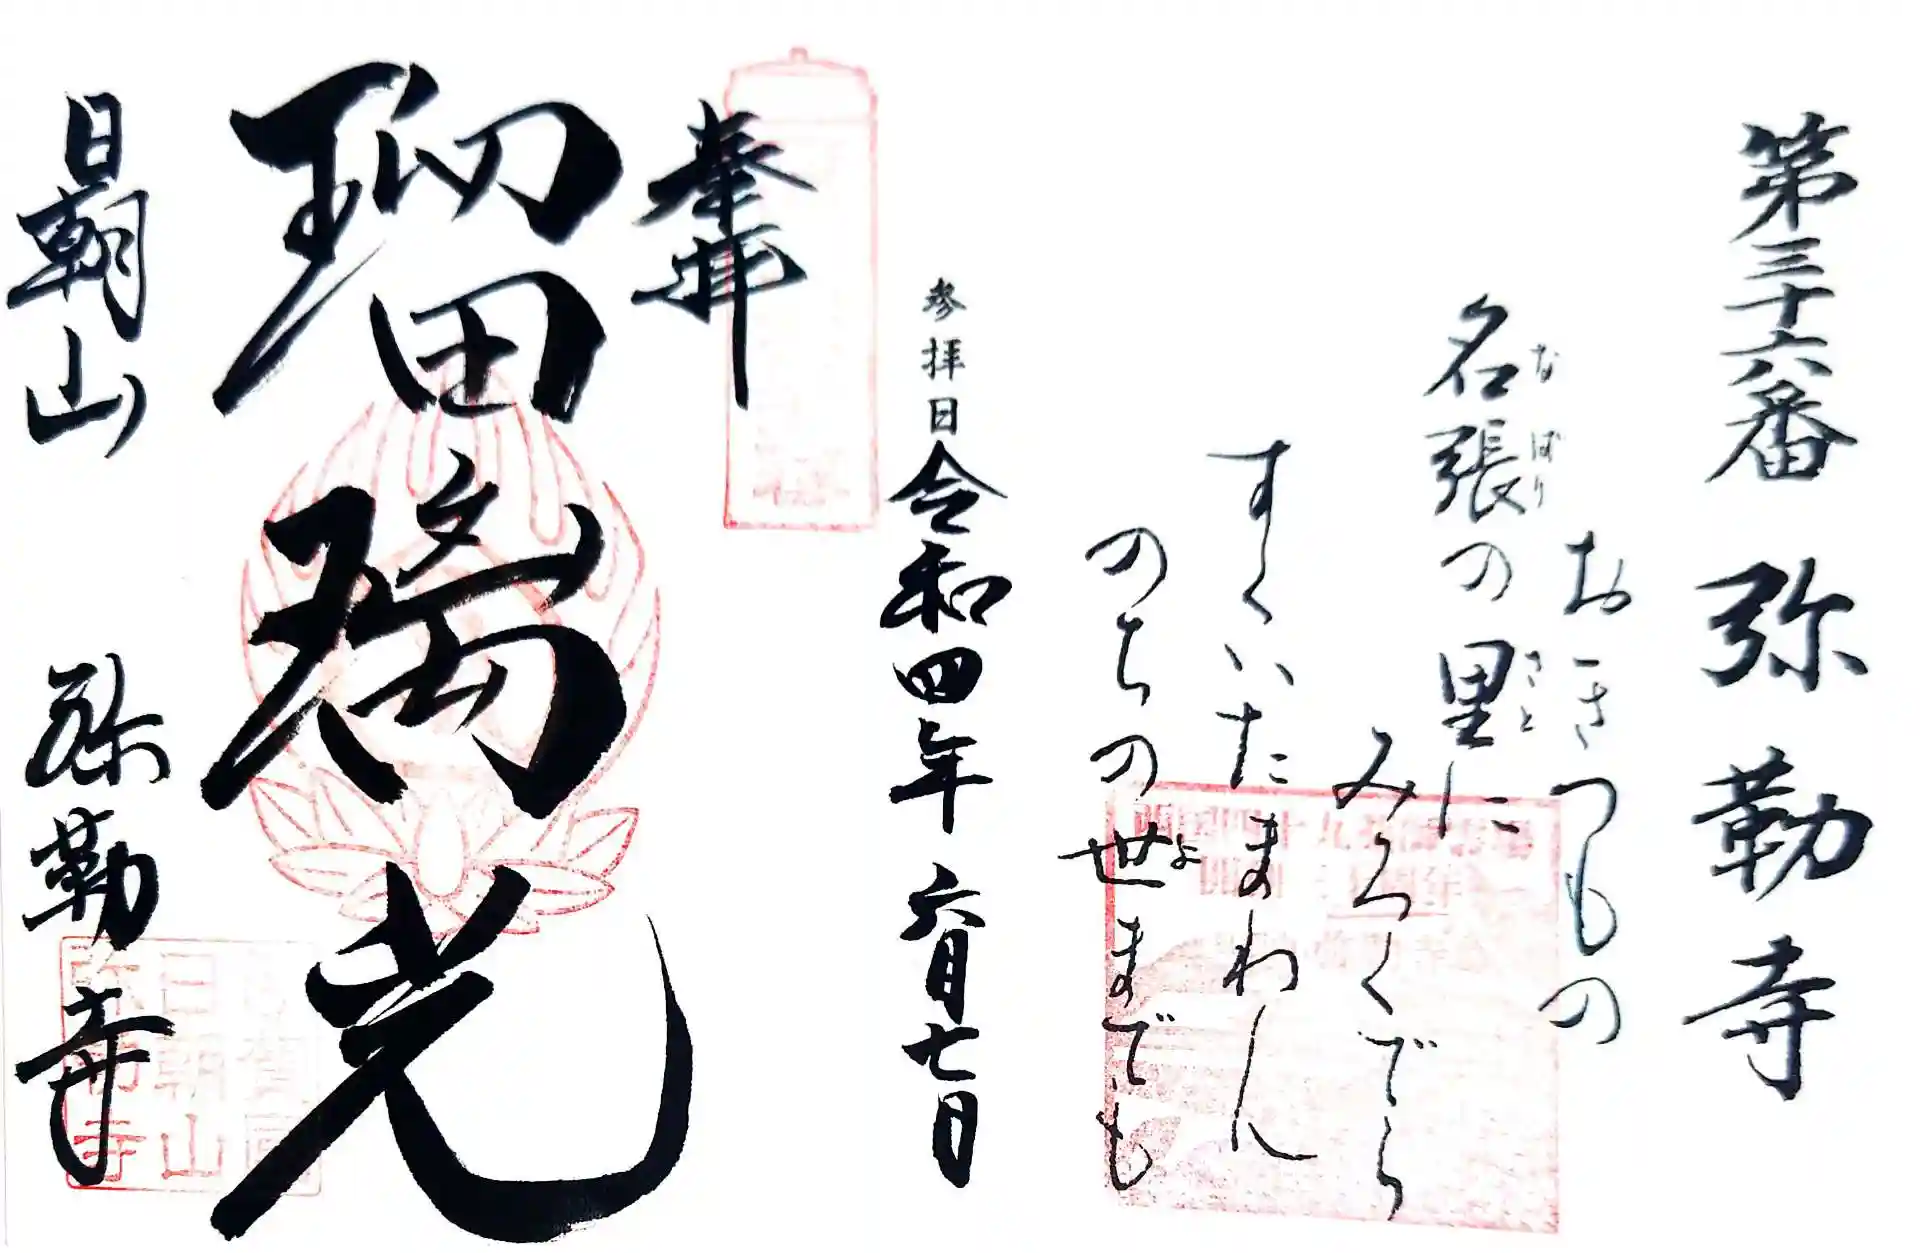 第三十六番 弥勒寺
おきつもの
名張の里に
なばり さと
みろくでら
すくいたまわん
のちの世までも
よ
参拝日 令和四年 六月七日
奉拝
瑠璃光
日朝山 弥勒寺
日朝山
弥勒寺